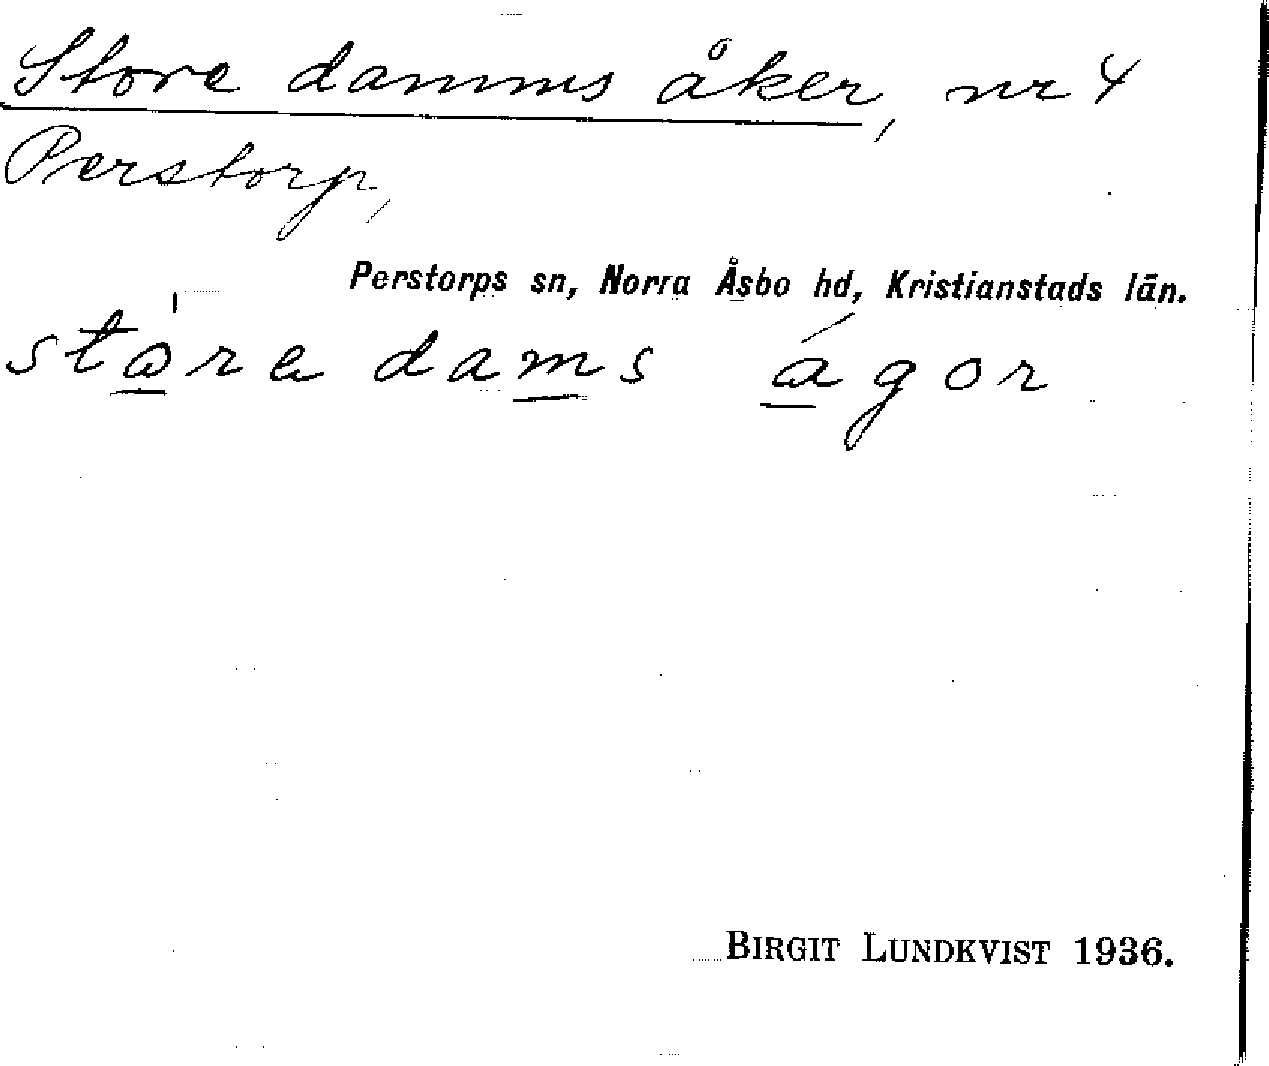 Store damms åker, nr 4
Perstorp,
Perstorps sn, Norra Åsbo hd, Kristianstads län.
ståra dams ágor
BIRGIT LUNDKVIST 1936.